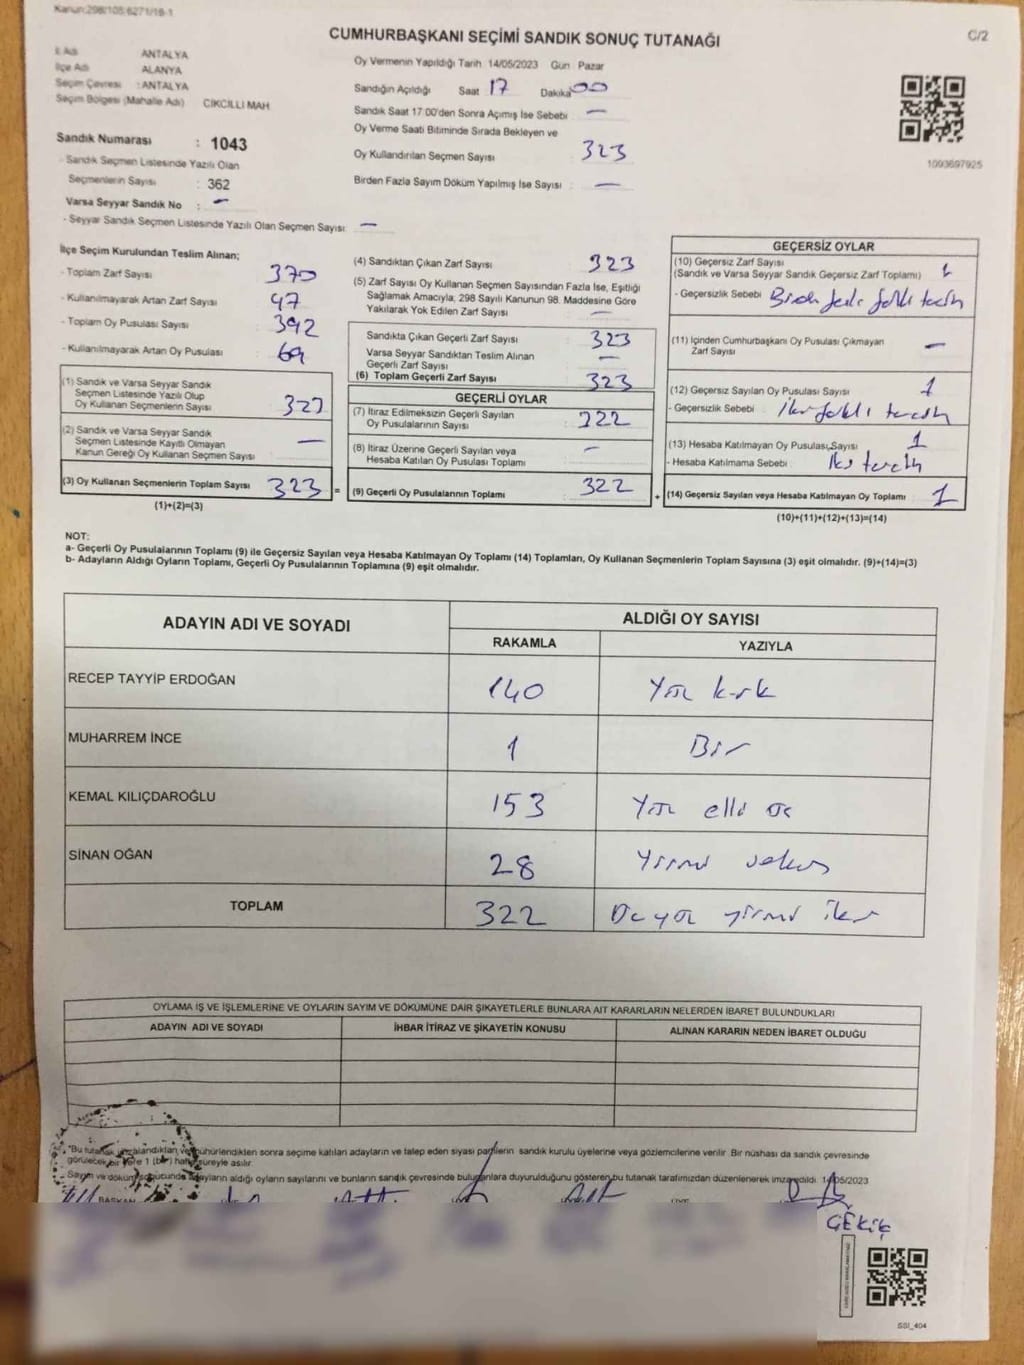 Kanun:298/105;6271/18-1
C/2
CUMHURBAŞKANI SEÇİMİ SANDIK SONUÇ TUTANAĞI
İl Adı ANTALYA
İlçe Adı ALANYA
Seçim Çevresi : ANTALYA
Seçim Bölgesi (Mahalle Adı) CIKCILLI MAH
Sandık Numarası : 1043
- Sandık Seçmen Listesinde Yazılı Olan
Seçmenlerin Sayısı : 362
Varsa Seyyar Sandık No : -
- Seyyar Sandık Seçmen Listesinde Yazılı Olan Seçmen Sayısı: -
Oy Vermenin Yapıldığı Tarih 14/05/2023 Gün Pazar
Sandığın Açıldığı Saat 17 Dakika 00
Sandık Saat 17:00'den Sonra Açımış İse Sebebi -
Oy Verme Saati Bitiminde Sırada Bekleyen ve
Oy Kullandırılan Seçmen Sayısı 323
Birden Fazla Sayım Döküm Yapılmış İse Sayısı : -
1093697925
İlçe Seçim Kurulundan Teslim Alınan;
- Toplam Zarf Sayısı 370
- Kullanılmayarak Artan Zarf Sayısı 47
- Toplam Oy Pusulası Sayısı 392
- Kullanılmayarak Artan Oy Pusulası 69
(1) Sandık ve Varsa Seyyar Sandık
Seçmen Listesinde Yazılı Olup
Oy Kullanan Seçmenlerin Sayısı 323
(2) Sandık ve Varsa Seyyar Sandık
Seçmen Listesinde Kayıtlı Olmayan
Kanun Gereği Oy Kullanan Seçmen Sayısı -
(3) Oy Kullanan Seçmenlerin Toplam Sayısı 323 =
(1)+(2)=(3)
(4) Sandıktan Çıkan Zarf Sayısı 323
(5) Zarf Sayısı Oy Kullanan Seçmen Sayısından Fazla İse, Eşitliği
Sağlamak Amacıyla; 298 Sayılı Kanunun 98. Maddesine Göre
Yakılarak Yok Edilen Zarf Sayısı -
Sandıkta Çıkan Geçerli Zarf Sayısı 323
Varsa Seyyar Sandıktan Teslim Alınan
Geçerli Zarf Sayısı -
(6) Toplam Geçerli Zarf Sayısı 323
GEÇERLİ OYLAR
(7) İtiraz Edilmeksizin Geçerli Sayılan
Oy Pusulalarının Sayısı : 322
(8) İtiraz Üzerine Geçerli Sayılan veya
Hesaba Katılan Oy Pusulası Toplamı -
(9) Geçerli Oy Pusulalarının Toplamı 322 +
GEÇERSİZ OYLAR
(10) Geçersiz Zarf Sayısı
(Sandık ve Varsa Seyyar Sandık Geçersiz Zarf Toplamı) 1
- Geçersizlik Sebebi : Birden fazla farklı tercih
(11) İçinden Cumhurbaşkanı Oy Pusulası Çıkmayan
Zarf Sayısı -
(12) Geçersiz Sayılan Oy Pusulası Sayısı 1
- Geçersizlik Sebebi : İki farklı tercih
(13) Hesaba Katılmayan Oy Pusulası Sayısı 1
- Hesaba Katılmama Sebebi : İki tercih
(14) Geçersiz Sayılan veya Hesaba Katılmayan Oy Toplamı 1
(10)+(11)+(12)+(13)=(14)
NOT:
a- Geçerli Oy Pusulalarının Toplamı (9) ile Geçersiz Sayılan veya Hesaba Katılmayan Oy Toplamı (14) Toplamları, Oy Kullanan Seçmenlerin Toplam Sayısına (3) eşit olmalıdır. (9)+(14)=(3)
b- Adayların Aldığı Oyların Toplamı, Geçerli Oy Pusulalarının Toplamına (9) eşit olmalıdır.
ADAYIN ADI VE SOYADI ALDIĞI OY SAYISI
RAKAMLA YAZIYLA
RECEP TAYYİP ERDOĞAN 140 Yüz kırk
MUHARREM İNCE 1 Bir
KEMAL KILIÇDAROĞLU 153 Yüz elli üç
SİNAN OĞAN 28 Yirmi sekiz
TOPLAM 322 Üç yüz yirmi iki
OYLAMA İŞ VE İŞLEMLERİNE VE OYLARIN SAYIM VE DÖKÜMÜNE DAİR ŞİKAYETLERLE BUNLARA AİT KARARLARIN NELERDEN İBARET BULUNDUKLARI
ADAYIN ADI VE SOYADI İHBAR İTİRAZ VE ŞİKAYETİN KONUSU ALINAN KARARIN NEDEN İBARET OLDUĞU
"Bu tutanak imzalandıktan ve mühürlendikten sonra seçime katılan adayların ve talep eden siyasi partilerin sandık kurulu üyelerine veya gözlemcilerine verilir. Bir nüshası da sandık çevresinde
görülecek bir yere 1 (bir) hafta süreyle asılır.
Sayım ve döküm sonucunda adayların aldığı oyların sayılarını ve bunların sandık çevresinde bulunanlara duyurulduğunu gösteren bu tutanak tarafımızdan düzenlenerek imza edildi. 14/05/2023
BAŞKAN
ÜYE
GEKİÇ
SSI_404